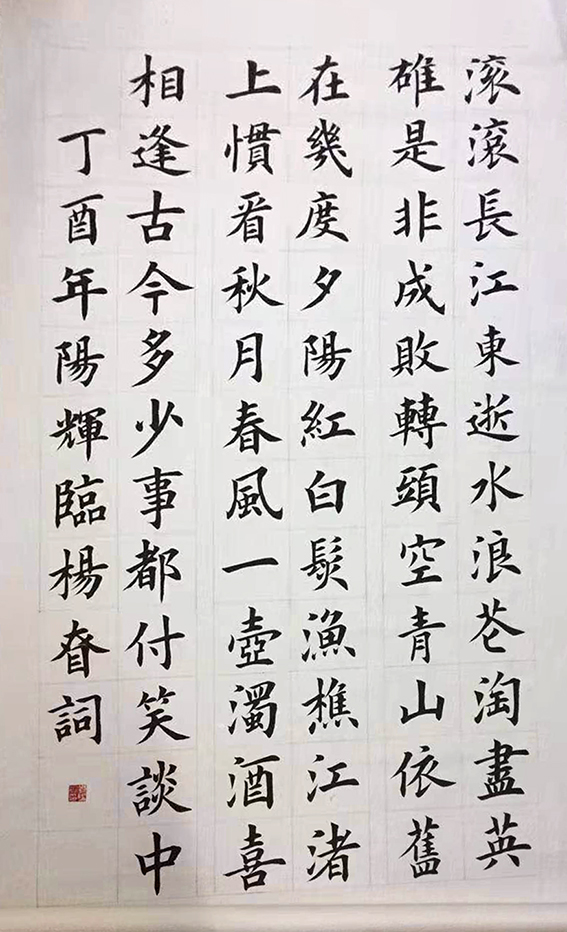 滚滚長江東逝水浪花淘盡英
雄是非成敗轉頭空青山依舊
在幾度夕陽紅白髮漁樵江渚
上慣看秋月春風一壺濁酒喜
相逢古今多少事都付笑談中
丁酉年陽輝臨楊眘詞